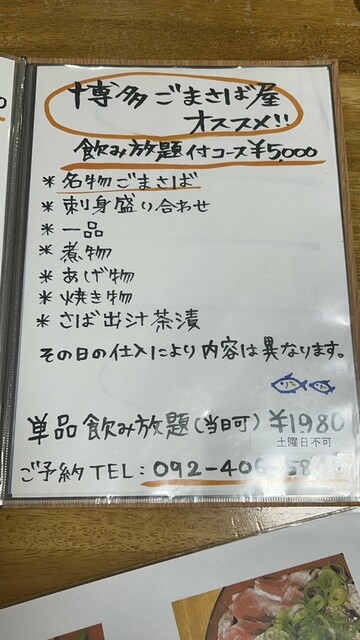 博多ごまさば屋
オススメ!!
飲み放題付コース¥5,000
* 名物ごまさば
* 刺身盛り合わせ
* 一品
* 煮物
* あげ物
* 焼き物
* さば出汁茶漬
その日の仕入により内容は異なります。
単品飲み放題(当日可) ¥1980
土曜日不可
ご予約TEL: